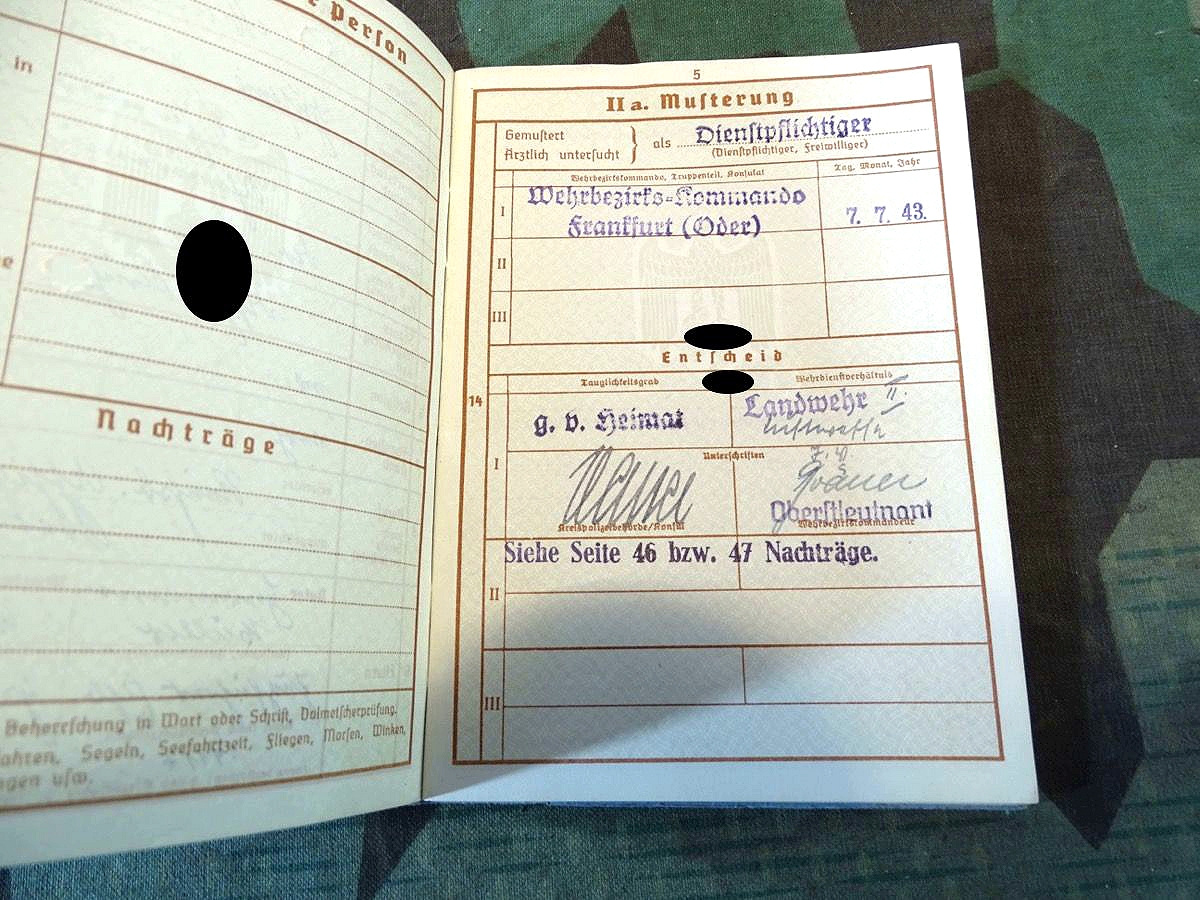 r Person
in
e
Nachträge
Beherrschung in Wort oder Schrift, Dolmetscherprüfung.
ahren, Segeln, Seefahrtzeit, Fliegen, Morsen, Winken,
ngen usw.
5
II a. Musterung
Gemustert
Ärztlich untersucht } als Dienstpflichtiger
(Dienstpflichtiger, Freiwilliger)
Wehrbezirkskommando, Truppenteil, Konsulat
Tag, Monat, Jahr
I Wehrbezirks-Kommando
Frankfurt (Oder) 7. 7. 43.
II
III
Entscheid
14
Tauglichkeitsgrad Wehrdienstverhältnis
g. v. Heimat Landwehr II.
Luftwaffe
I Unterschriften
Oberstleutnant
Kreispolizeibehörde/Konsul Wehrbezirkskommandeur
Siehe Seite 46 bzw. 47 Nachträge.
II
III